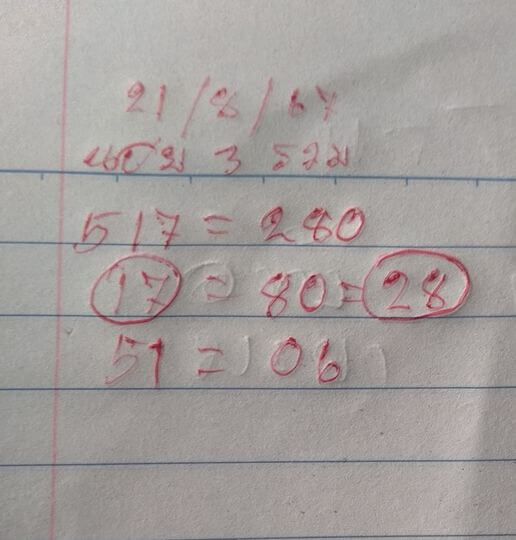 21/8/67
3 รวม
517 = 280
17 = 80 = 28
51 = 06